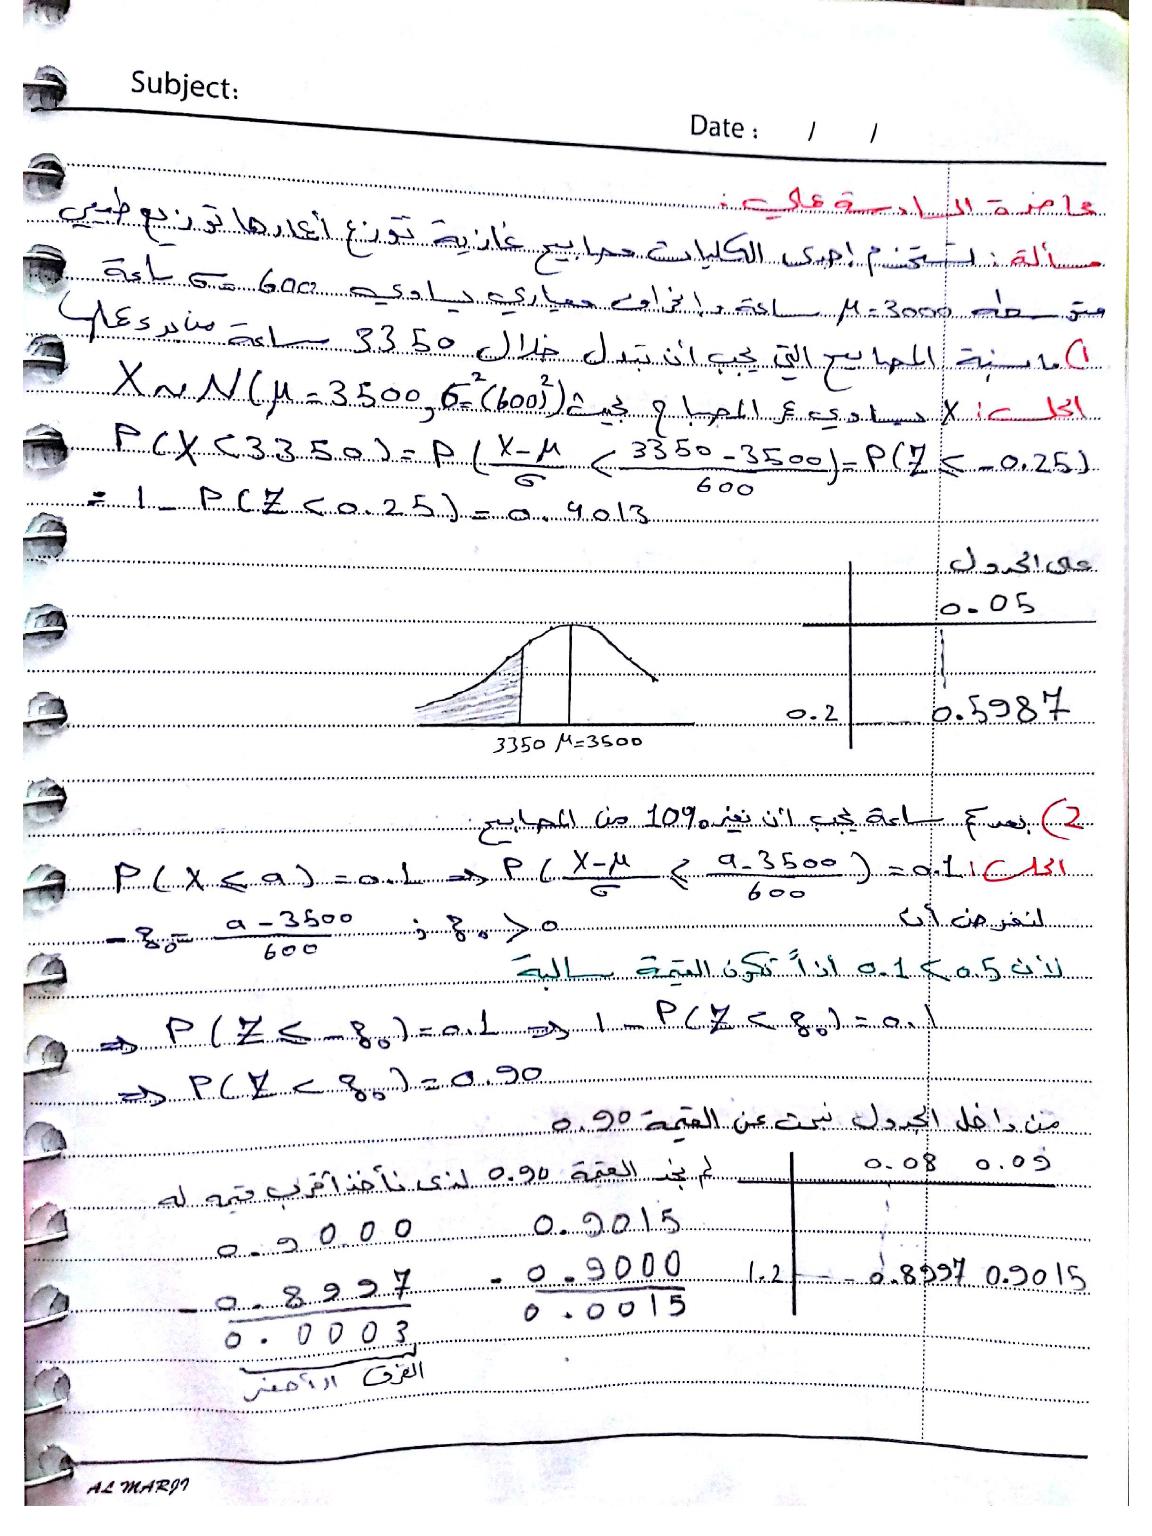 Subject:
Date : / /
محاضرة السادسة عملي :
مسألة : تستخدم إحدى الكليات مصابيح غازية توزع أعمارها توزيع طبيعي
متوسطه μ = 3000 ساعة وانحراف معياري يساوي σ = 600 ساعة
1) ما نسبة المصابيح التي يجب أن تبدل خلال 3350 ساعة من بدء عملها
الحل : X يساوي ع المصباح بحيث X ~ N(μ = 3500, σ² = (600)²)
P(X < 3350) = P( X-μ / σ < 3350 - 3500 / 600 ) = P(Z ≤ -0.25)
= 1 - P(Z < 0.25) = 0.4013
من الجدول
0.05
0.2 0.5987
3350 μ=3500
2) بعد كم ساعة يجب أن نغير 10% من المصابيح
الحل : P(X ≤ a) = 0.1 ⇒ P( X-μ / σ ≤ a - 3500 / 600 ) = 0.1
لنفرض أن -z₀ = a - 3500 / 600 ; z₀ > 0
لأن 0.1 < 0.5 اذاً تكون القيمة سالبة
⇒ P(Z ≤ -z₀) = 0.1 ⇒ 1 - P(Z < z₀) = 0.1
⇒ P(Z < z₀) = 0.90
من داخل الجدول نبحث عن القيمة 0.90
0.08 0.09
1.2 0.8997 0.9015
لم نجد القيمة 0.90 لذى نأخذ أقرب قيمه له
0.9000 0.9015
- 0.8997 - 0.9000
0.0003 0.0015
الفرق الأصغر
AL MARJI